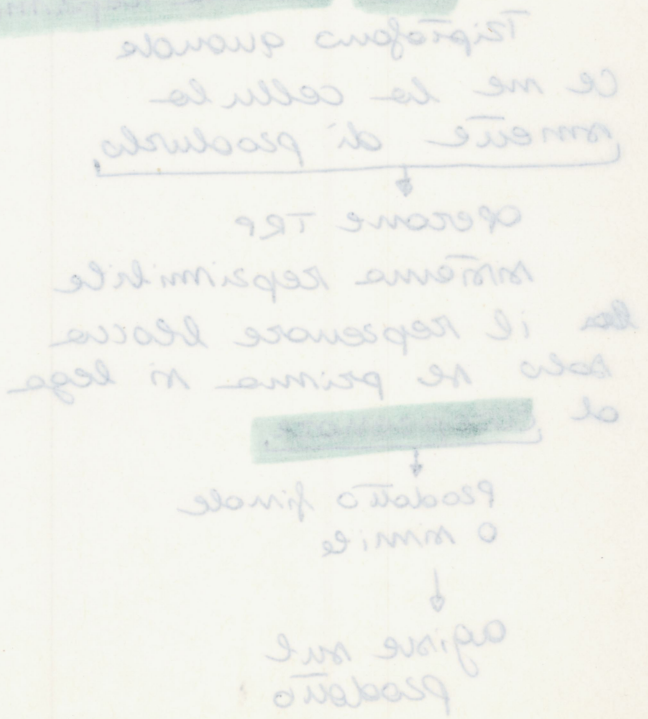 Triptofano quando
ce ne la cellula
smette di produrlo
operone TRP
sistema reprimibile
il repressore blocca
solo se prima si lega
al
Prodotto finale
o simile
agisce sul
prodotto